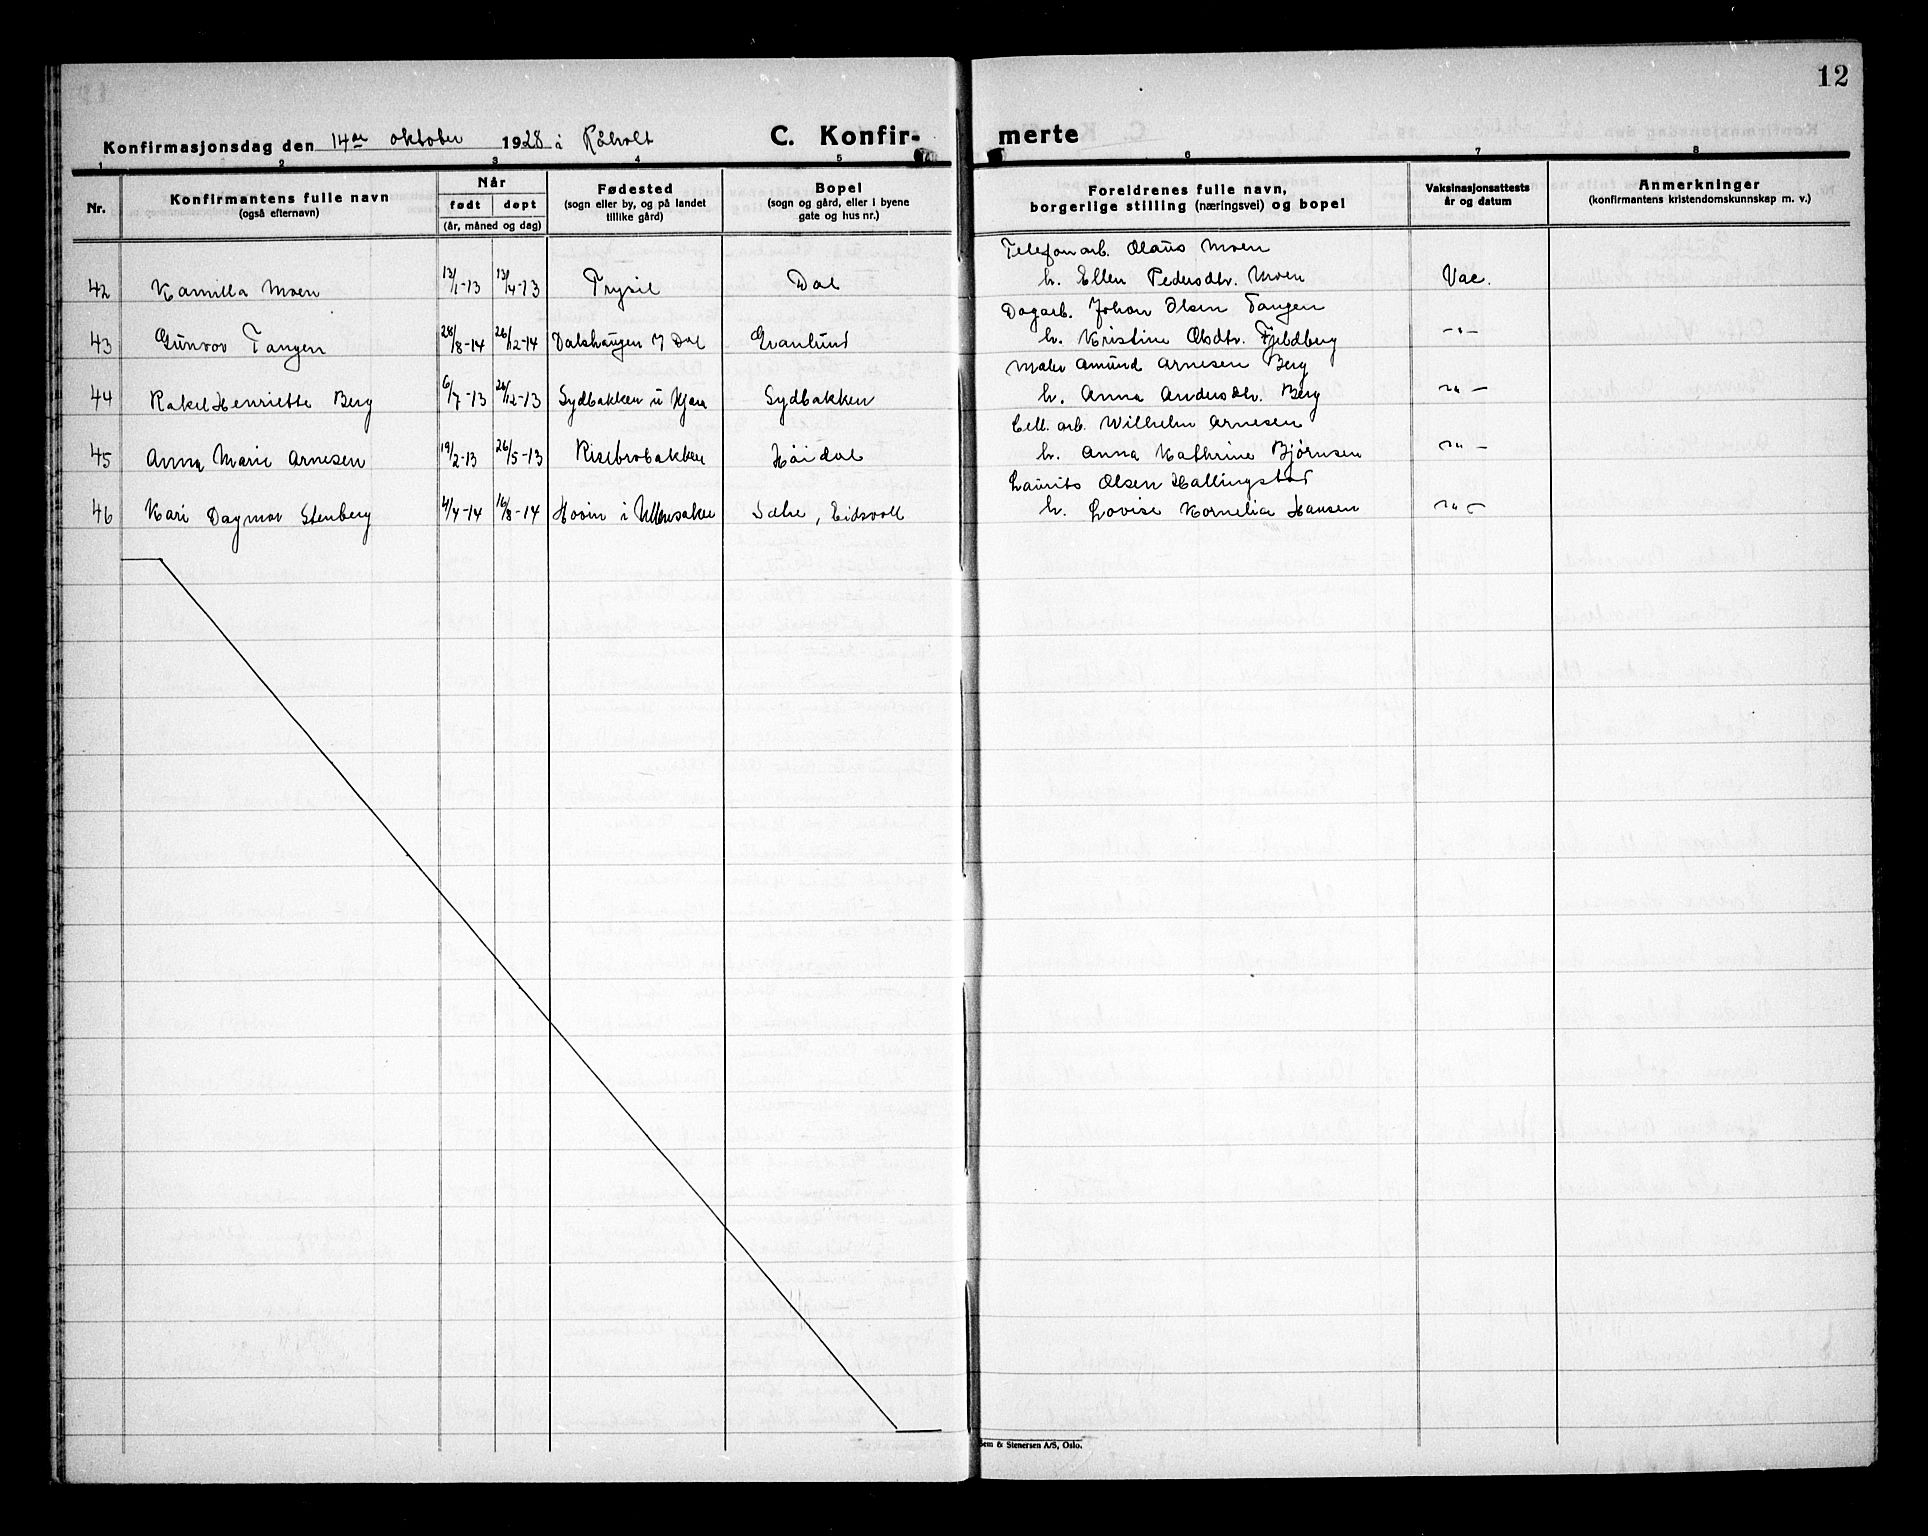 12
Konfirmasjonsdag den 14de oktober 1928 i Råholt C. Konfir- merte
1 2 3 4 5 6 7 8
Nr.
Konfirmantens fulle navn
(også efternavn)
Når
født døpt
(år, måned og dag)
Fødested
(sogn eller by, og på landet
tillike gård)
Bopel
(sogn og gård, eller i byene
gate og hus nr.)
Foreldrenes fulle navn,
borgerlige stilling (næringsvei) og bopel
Vaksinasjonsattests
år og datum
Anmerkninger
(konfirmantens kristendomskunnskap m. v.)
Telefonarb. Olaus Moen
42 Kamilla Moen 13/1-13 13/4-13 Trysil Dal h. Ellen Pedersdtr. Moen Vac.
Dagarb. Johan Olsen Tangen
43 Gunvor Tangen 28/8-14 26/12-14 Dalshaugen Dal Granlund h. Kristine Olsdtr. Fjeldberg -"-
Maler Amund Arnesen Berg
44 Rakel Henriette Berg 6/7-13 26/12-13 Sydbakken u Hjera Sydbakken h. Anna Andersdtr. Berg -"-
Cell. arb. Wilhelm Arnesen
45 Anna Marie Arnesen 19/2-13 26/5-13 Risebrobakken Høidal h. Anna Kathrine Bjørnsen -"-
Laurits Olsen Hallingstad
46 Kari Dagmar Stenberg 4/4-14 16/8-14 Hovin i Ullensaker Sæhe, Eidsvoll h. Lovise Kornelia Hansen -"-
Sem & Stenersen A/S, Oslo.